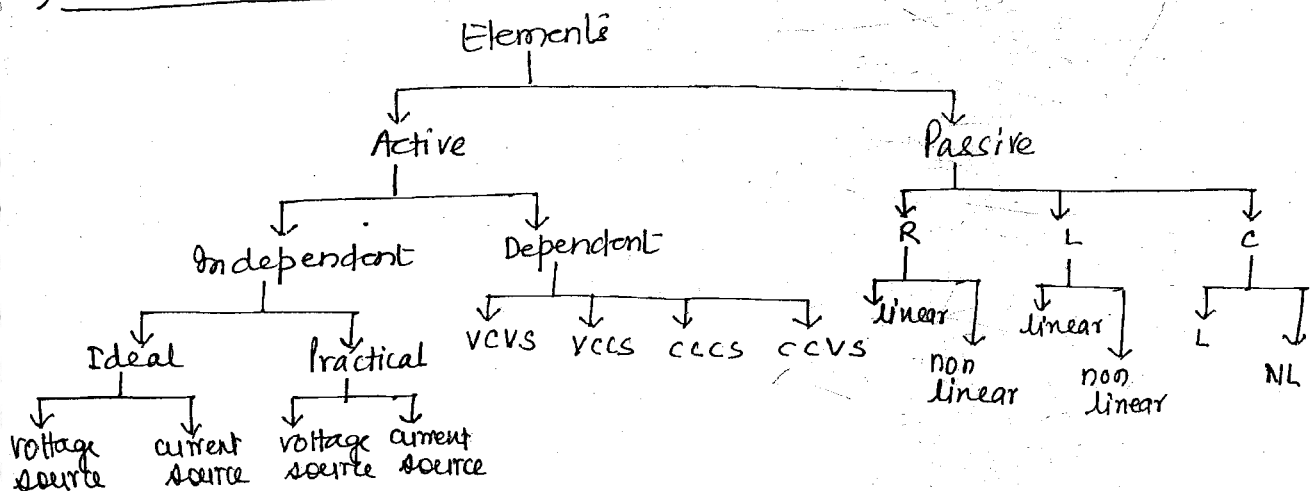 Elements
Active Passive
Independent Dependent R L C
Ideal Practical VCVS VCCS CCCS CCVS linear non linear linear non linear L NL
voltage source current source voltage source current source